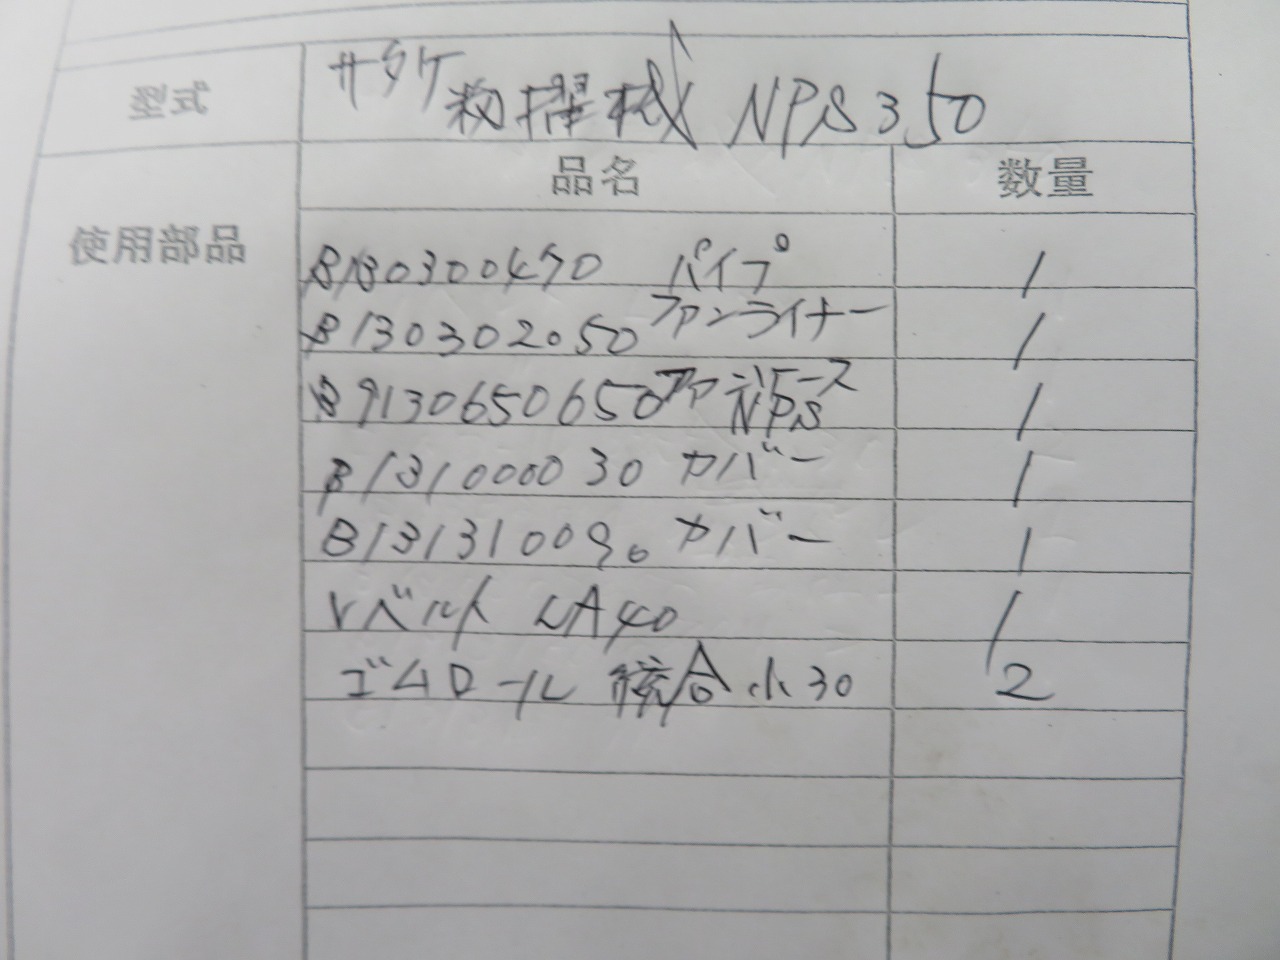 型式 サタケ籾摺機 NPS350
使用部品 品名 数量
B130300470 パイプ 1
B130302050 ファンライナー 1
B9130650650 ファンケース NPS 1
B131000030 カバー 1
B131310090 カバー 1
Vベルト LA40 1
ゴムロール 統合小30 2